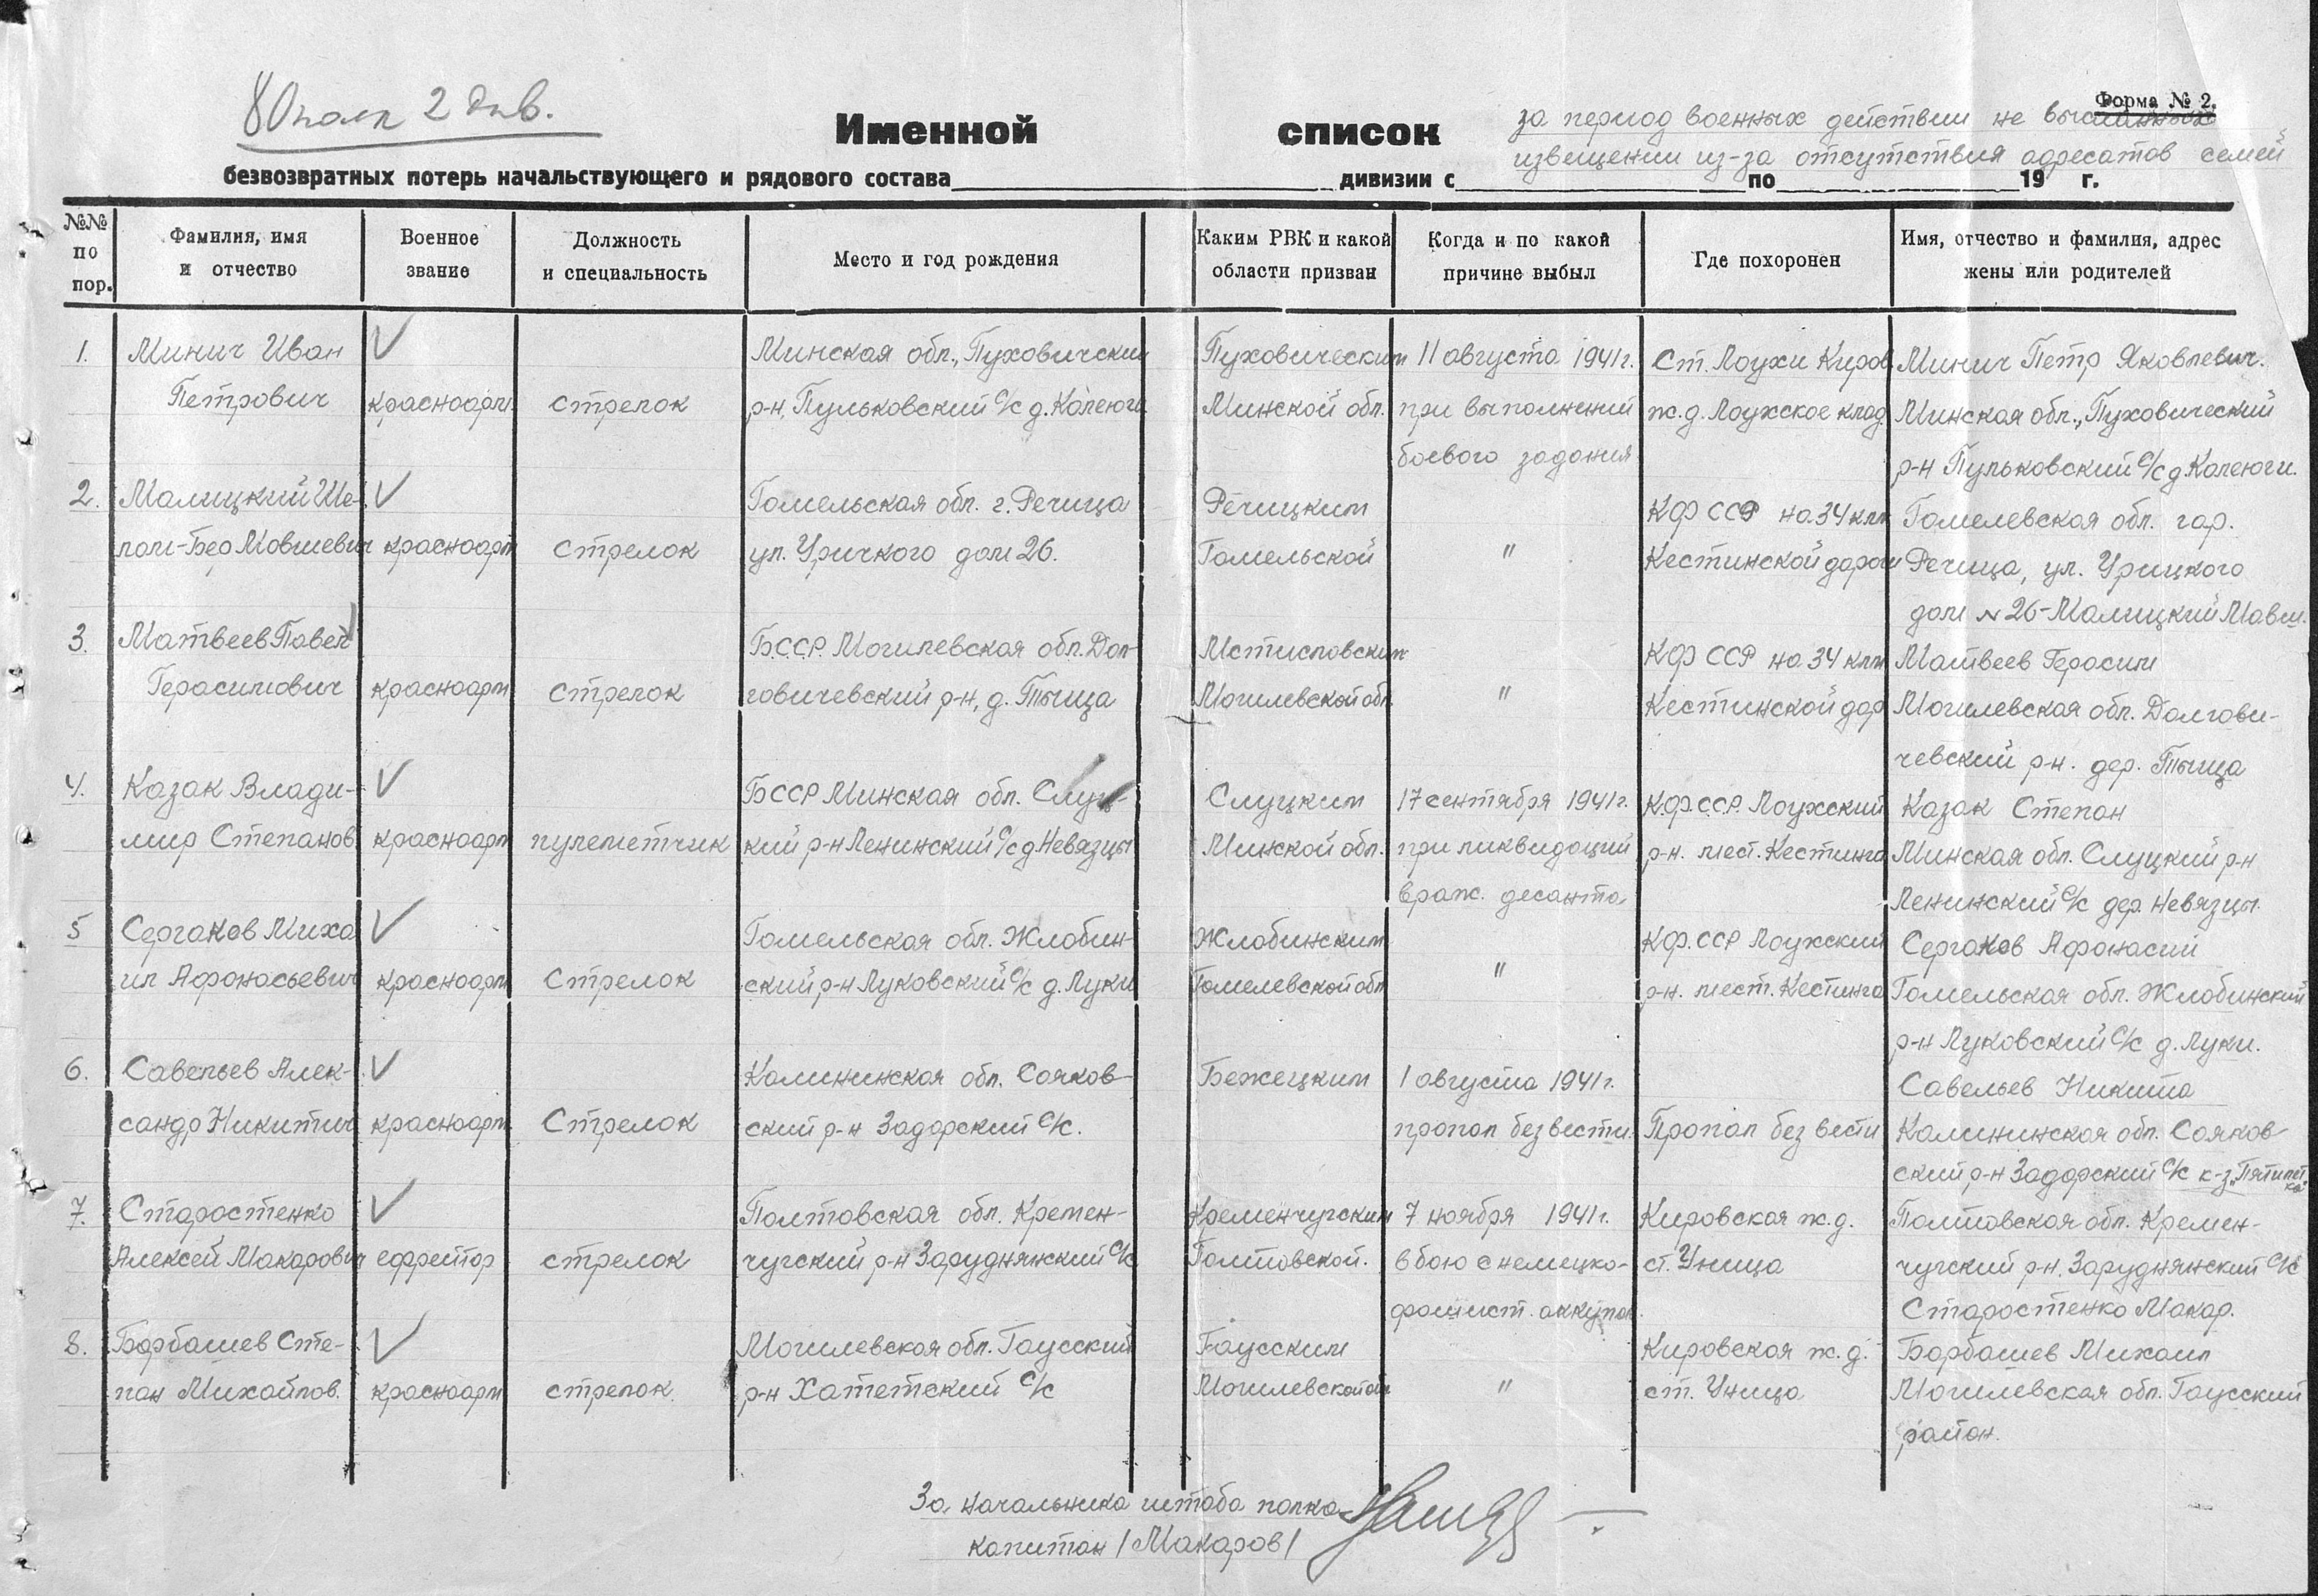 80 полк 2 див.
Форма № 2.
Именной список
за период военных действии не высланных
извещении из-за отсутствия адресатов семей
безвозвратных потерь начальствующего и рядового состава дивизии с по 19 г.
№№ по пор.
Фамилия, имя и отчество
Военное звание
Должность и специальность
Место и год рождения
Каким РВК и какой области призван
Когда и по какой причине выбыл
Где похоронен
Имя, отчество и фамилия, адрес жены или родителей
1. Минич Иван Минская обл., Пуховичский Пуховическим 11 августа 1941г. ст. Лоухи Киров. Минич Петр Яковлевич.
Петрович красноарм. стрелок р-н, Пульковский с/с д. Калеюги Минской обл. при выполнений ж.д. Лоухское клад. Минская обл., Пуховический
боевого задания р-н Пульковский с/с д. Калеюги.
2. Малицкий Ше- Гомельская обл. г. Речица Речицким КФ ССР на 34 клм Гомелевская обл. гор.
лом-Бер Мовшевич красноарм стрелок ул. Урицкого дом 26. Гомельской " Кестинской дороги Речица, ул. Урицкого
дом № 26 - Малицкий Мовш.
3. Матвеев Павел БССР. Могилевская обл. Дол- Мстисловским КФ ССР на 34 клм Матвеев Герасим
Герасимович красноарм стрелок говичевский р-н, д. Тыща Могилевской обл. " Кестинской дор Могилевская обл. Долгови-
чевский р-н. дер. Тыща
4. Казак Влади- БССР Минская обл. Слуц- Слуцким 17 сентября 1941г. К.Ф.С.С.Р. Лоухский Казак Степан
мир Степанов. красноарм пулеметчик кий р-н Ленинский с/с д. Невязцы Минской обл. при ликвидаций р-н. мест. Кестинга Минская обл. Слуцкий р-н
враж. десанта Ленинский с/с дер. Невязцы.
5 Сергаков Миха Гомельская обл. Жлобин- Жлобинским К.Ф.ССР Лоухский Сергаков Афонасий
ил Афонасьевич красноарм Стрелок ский р-н Луковский с/с д. Луки Гомелевской обл " р-н. мест. Кестинга Гомельская обл. Жлобинский
р-н Луковский с/с д. Луки.
6. Савельев Алек- Калининская обл. Сояков- Бежецким 1 августа 1941г. Савельев Никита
сандр Никитич красноарм. Стрелок ский р-н Задорский с/с. пропал без вести. Пропал без вести Калининская обл. Сояков
ский р-н Задорский с/с к-з „Пятилетка"
7. Старостенко Полтавская обл. Кремен- Кременчугским 7 ноября 1941г. Кировская ж.д. Полтовская обл. Кремен-
Алексей Макарович ефрейтор стрелок чугский р-н Заруднянский с/с Полтовской. в бою с немецко- ст. Уница чугский р-н. Заруднянский с/с
фашист. аккупан. Старостенко Макар.
8. Борбашев Сте- Могилевская обл. Гаусский Гаусским Кировская ж.д. Борбашев Михаил
пан Михайлов. красноарм стрелок. р-н Хатетский с/с Могилевской обл " ст. Уница Могилевская обл. Гаусский
район.
За начальника штаба полка
капитан /Макаров/